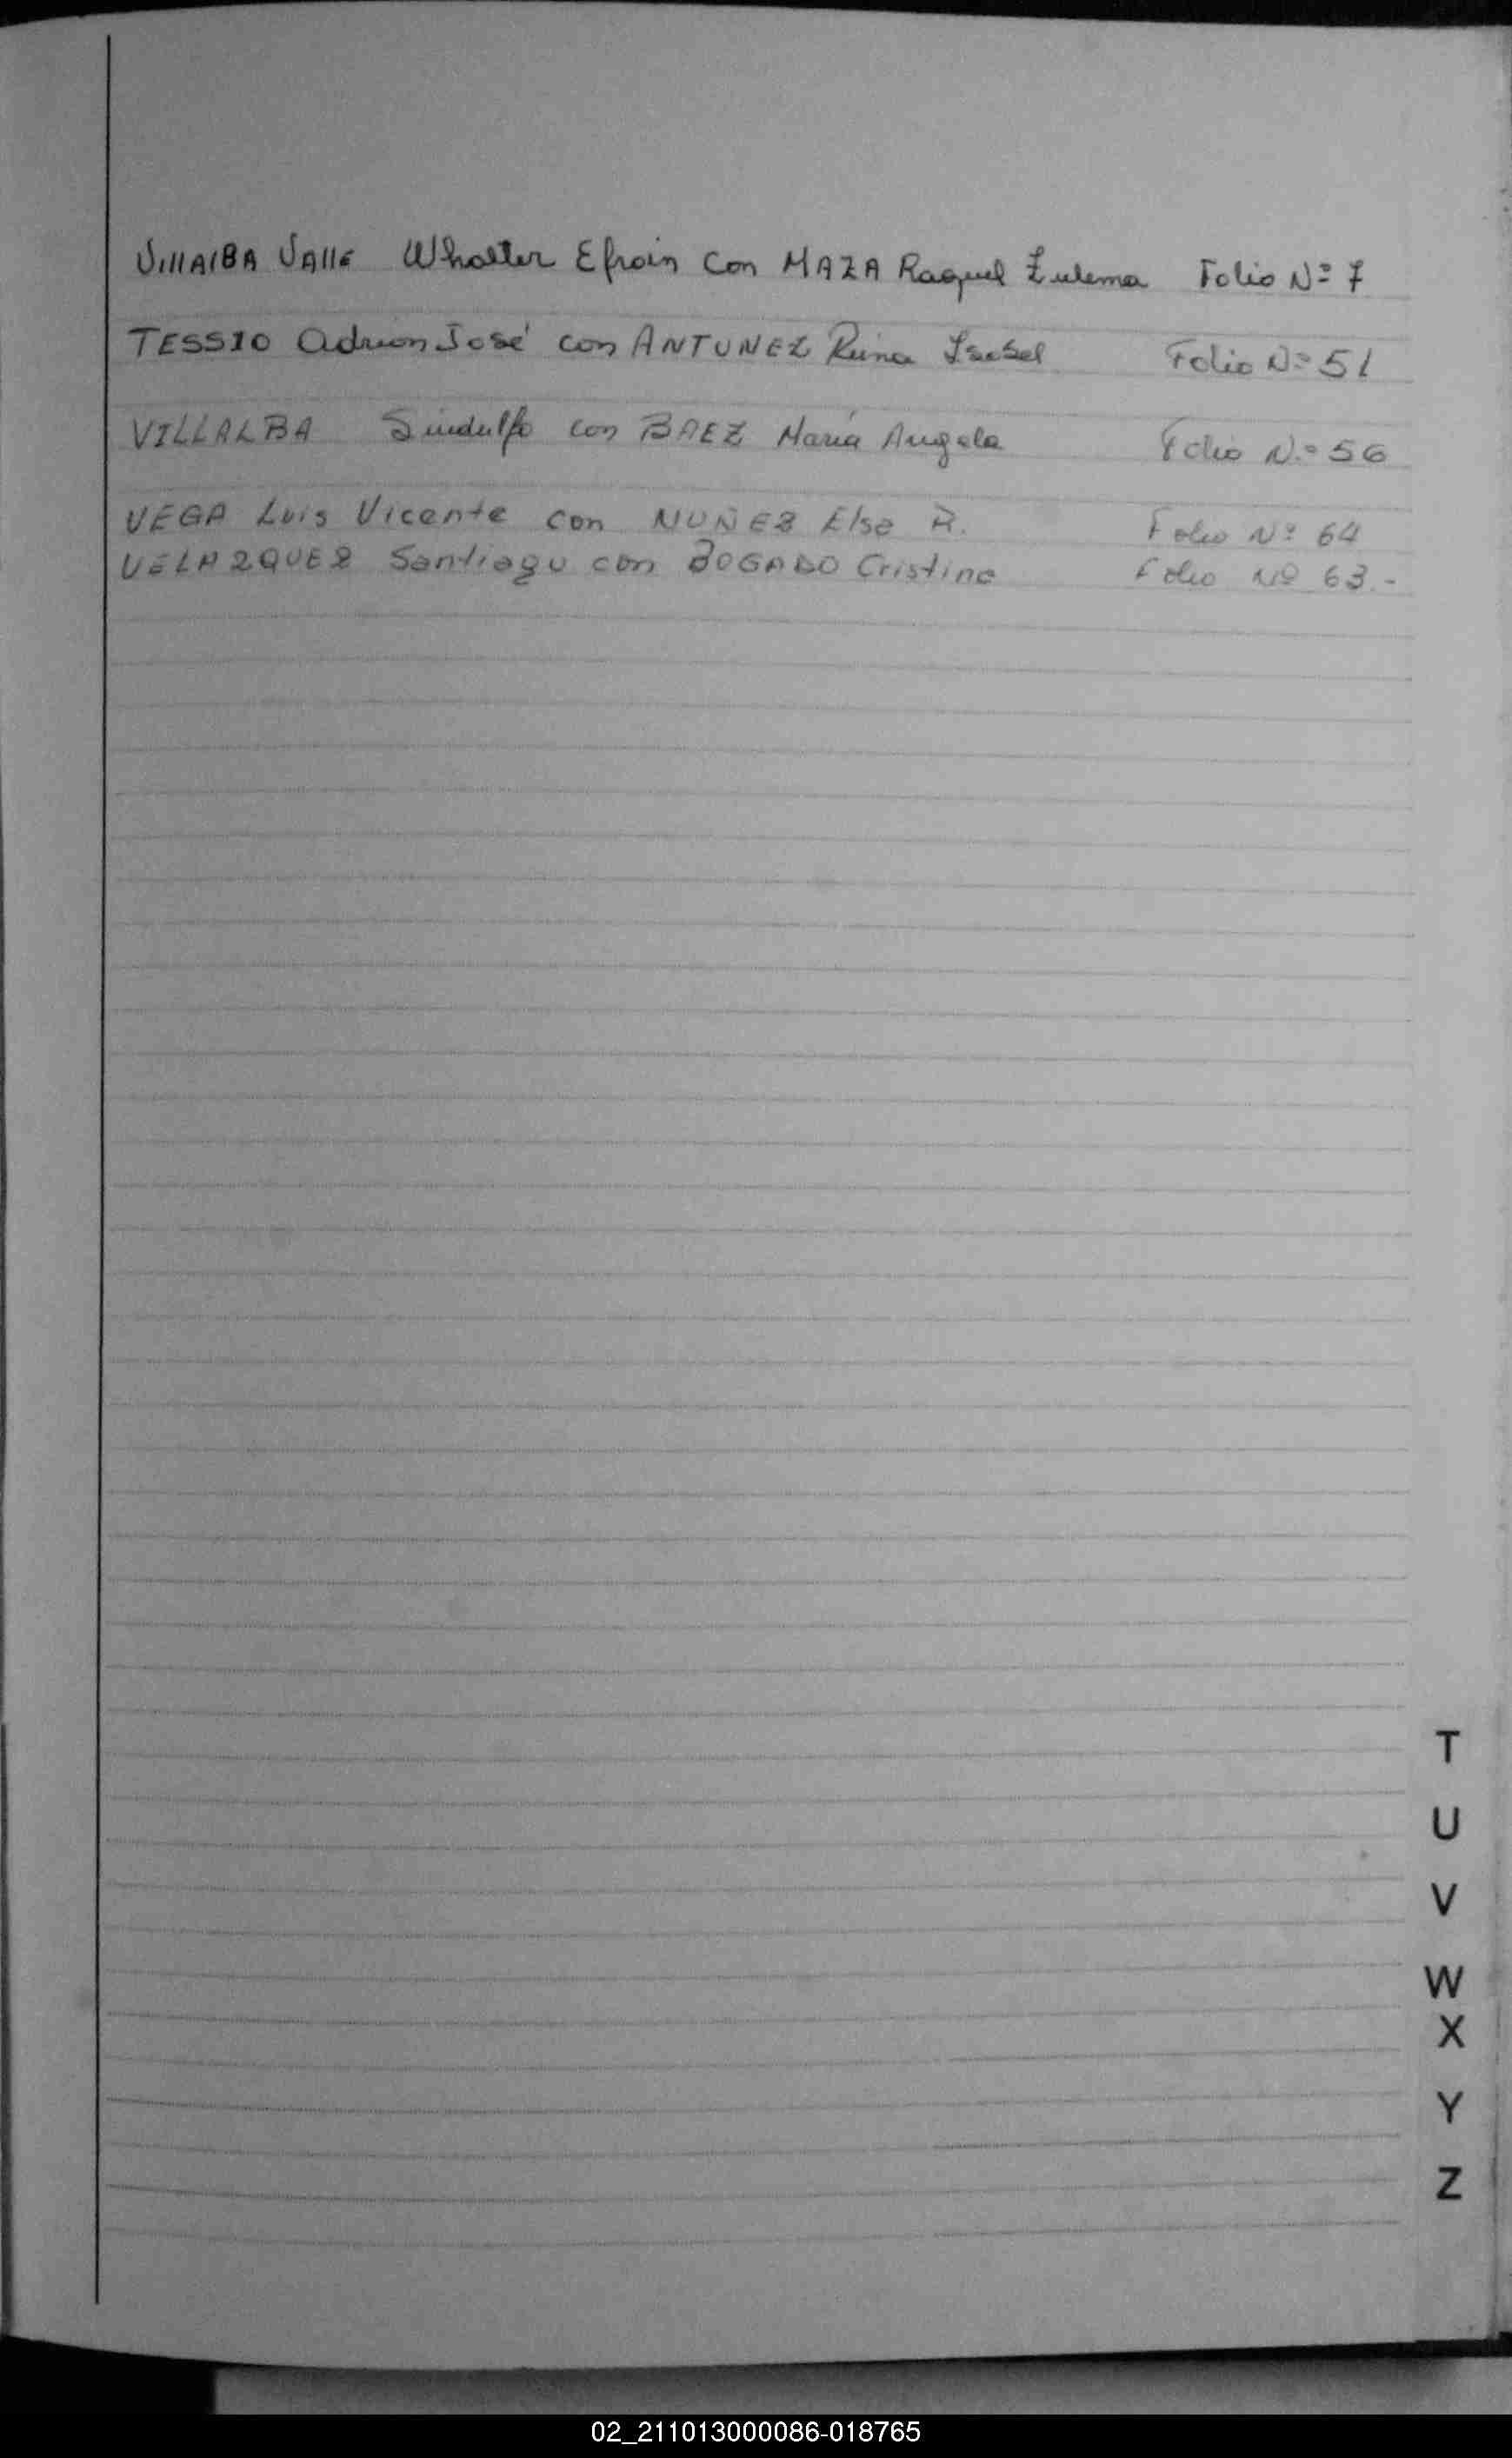 VillAlBA VAllE Whalter Efrain con MAZA Raquel Zulema Folio Nº 7
TESSIO Adrian José con ANTUNEZ Reina Isabel Folio Nº 51
VILLALBA Sindulfo con BAEZ María Angela Folio Nº 56
VEGA Luis Vicente con NUÑEZ Elsa R. Folio Nº 64
VELAZQUEZ Santiago con BOGADO Cristina Folio Nº 63.-
T
U
V
W
X
Y
Z
02_211013000086-018765